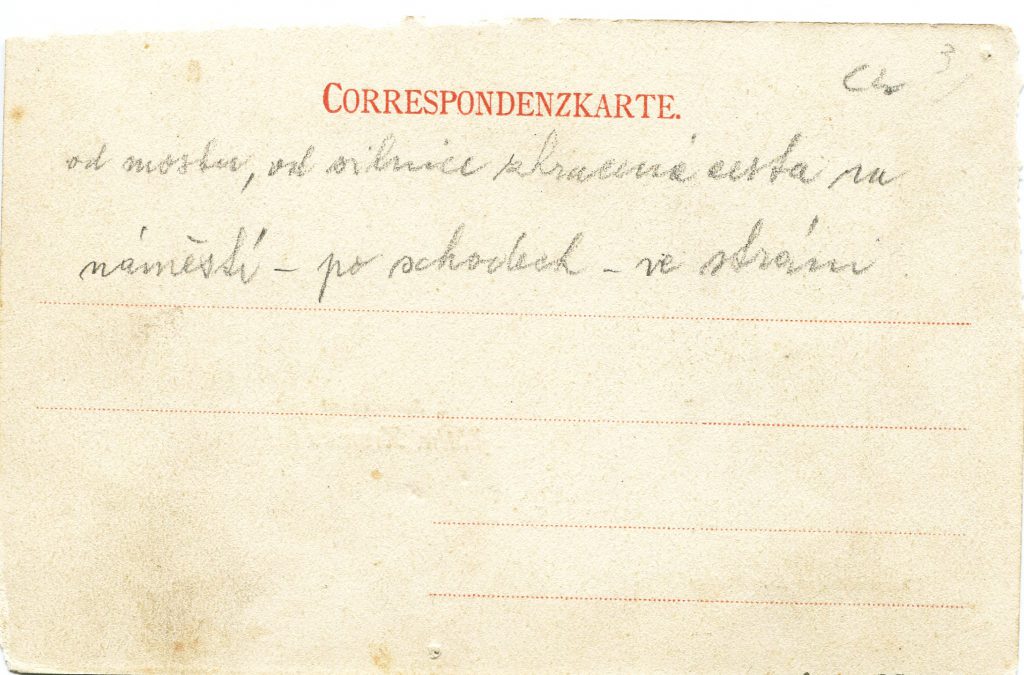 CORRESPONDENZKARTE.
od mostu, od silnice zkrácená cesta na
náměstí – po schodech – ve stráni